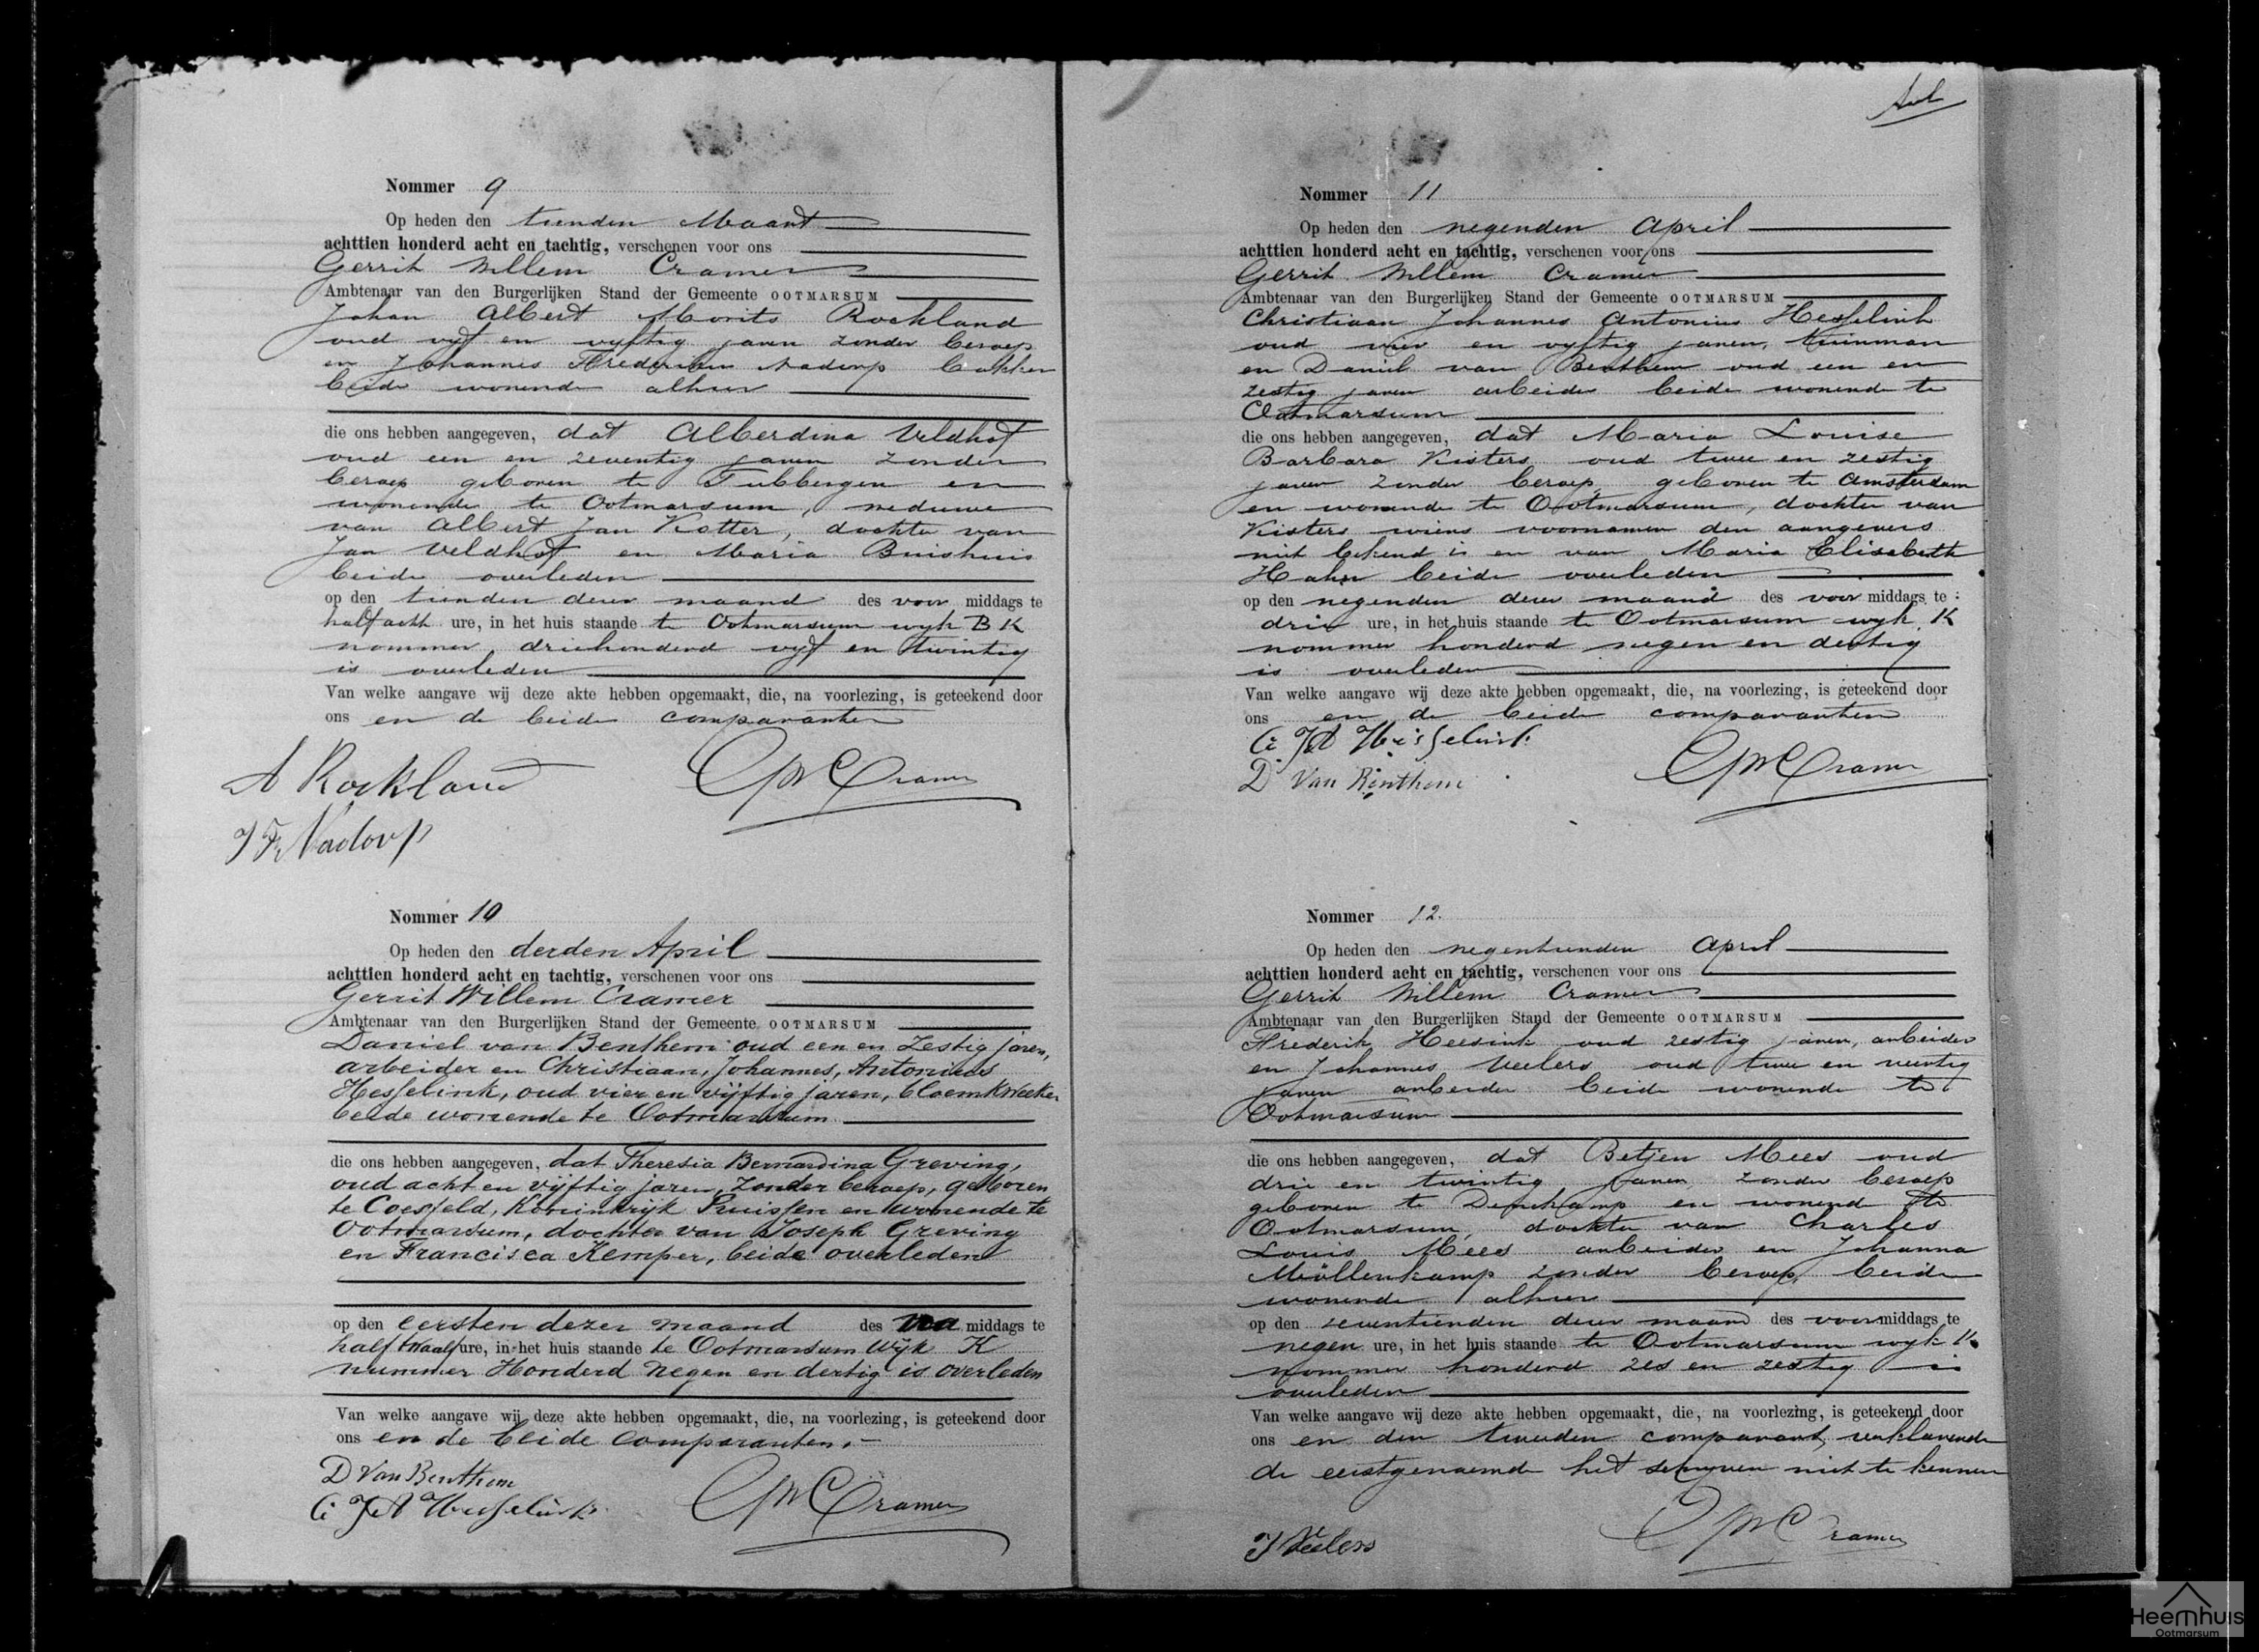 Nommer 9
Op heden den tienden Maart
achttien honderd acht en tachtig, verschenen voor ons
Gerrit Willem Cramer
Ambtenaar van den Burgerlijken Stand der Gemeente OOTMARSUM
Johan Albert Morits Rockland
oud vijf en vijftig jaren zonder beroep
en Johannes Frederikus Nadorp bakker
beide wonende alhier
die ons hebben aangegeven, dat Alberdina Veldhof
oud een en zeventig jaren zonder
beroep geboren te Tubbergen en
wonende te Ootmarsum, weduwe
van Albert Jan Kotter, dochter van
Jan Veldhof en Maria Buishuis
beide overleden
op den tienden dezer maand des voor middags te
half acht ure, in het huis staande te Ootmarsum wyk B K
nommer driehonderd vyf en twintig
is overleden
Van welke aangave wij deze akte hebben opgemaakt, die, na voorlezing, is geteekend door
ons en de beide comparanten
A Rockland
GWCramer
J F Nadorp
Nommer 10
Op heden den derden April
achttien honderd acht en tachtig, verschenen voor ons
Gerrit Willem Cramer
Ambtenaar van den Burgerlijken Stand der Gemeente OOTMARSUM
Daniel van Benthem oud een en Zestig jaren,
arbeider en Christiaan, Johannes, Antonius
Hesselink, oud vier en vijftig jaren, bloemkweeker
beide wonende te Ootmarsum
die ons hebben aangegeven, dat Theresia Bernardina Greving,
oud acht en vijftig jaren, zonder beroep, geboren
te Coesfeld, Koninkrijk Pruissen en wonende te
Ootmarsum, dochter van Joseph Greving
en Francisca Kemper, beide overleden
op den eersten dezer maand des na middags te
half twaalf ure, in het huis staande te Ootmarsum Wijk K
nummer Honderd negen en dertig is overleden
Van welke aangave wij deze akte hebben opgemaakt, die, na voorlezing, is geteekend door
ons en de beide comparanten.
D Van Benthem
C JA Hesselink
GWCramer
Nommer 11
Op heden den negenden April
achttien honderd acht en tachtig, verschenen voor ons
Gerrit Willem Cramer
Ambtenaar van den Burgerlijken Stand der Gemeente OOTMARSUM
Christiaan Johannes Antonius Hesselink
oud vier en vyftig jaren, tuinman
en Daniel van Benthem oud een en
zestig jaren arbeider beide wonend te
Ootmarsum
die ons hebben aangegeven, dat Maria Louise
Barbara Kisters oud twee en zestig
jaren zonder beroep geboren te Amsterdam
en wonende te Ootmarsum, dochter van
Kisters wiens voornamen den aangevers
niet bekend is en van Maria Elisabeth
Hahn beide overleden
op den negenden dezer maand des voor middags te
drie ure, in het huis staande te Ootmarsum wyk K
nommer honderd negen en dertig
is overleden
Van welke aangave wij deze akte hebben opgemaakt, die, na voorlezing, is geteekend door
ons en de beide comparanten
C JA Hesselink
D Van Benthem
GWCramer
Nommer 12.
Op heden den negentienden April
achttien honderd acht en tachtig, verschenen voor ons
Gerrit Willem Cramer
Ambtenaar van den Burgerlijken Stand der Gemeente OOTMARSUM
Frederik Heesink oud zestig jaren, arbeider
en Johannes Veelers oud twee en veertig
jaren arbeider beide wonende te
Ootmarsum
die ons hebben aangegeven, dat Betjen Mees oud
drie en twintig jaren zonder beroep
geboren te Denekamp en wonend te
Ootmarsum, dochter van Charles
Louis Mees arbeider en Johanna
Möllenkamp zonder beroep, beide
wonende alhier
op den zeventienden dezer maand des voor middags te
negen ure, in het huis staande te Ootmarsum wyk K
nommer honderd zes en zestig is
overleden
Van welke aangave wij deze akte hebben opgemaakt, die, na voorlezing, is geteekend door
ons en den tweeden comparant, verklarende
de eerstgenoemde het schryven niet te kennen
GWCramer
J Veelers
Heemhuis
Ootmarsum